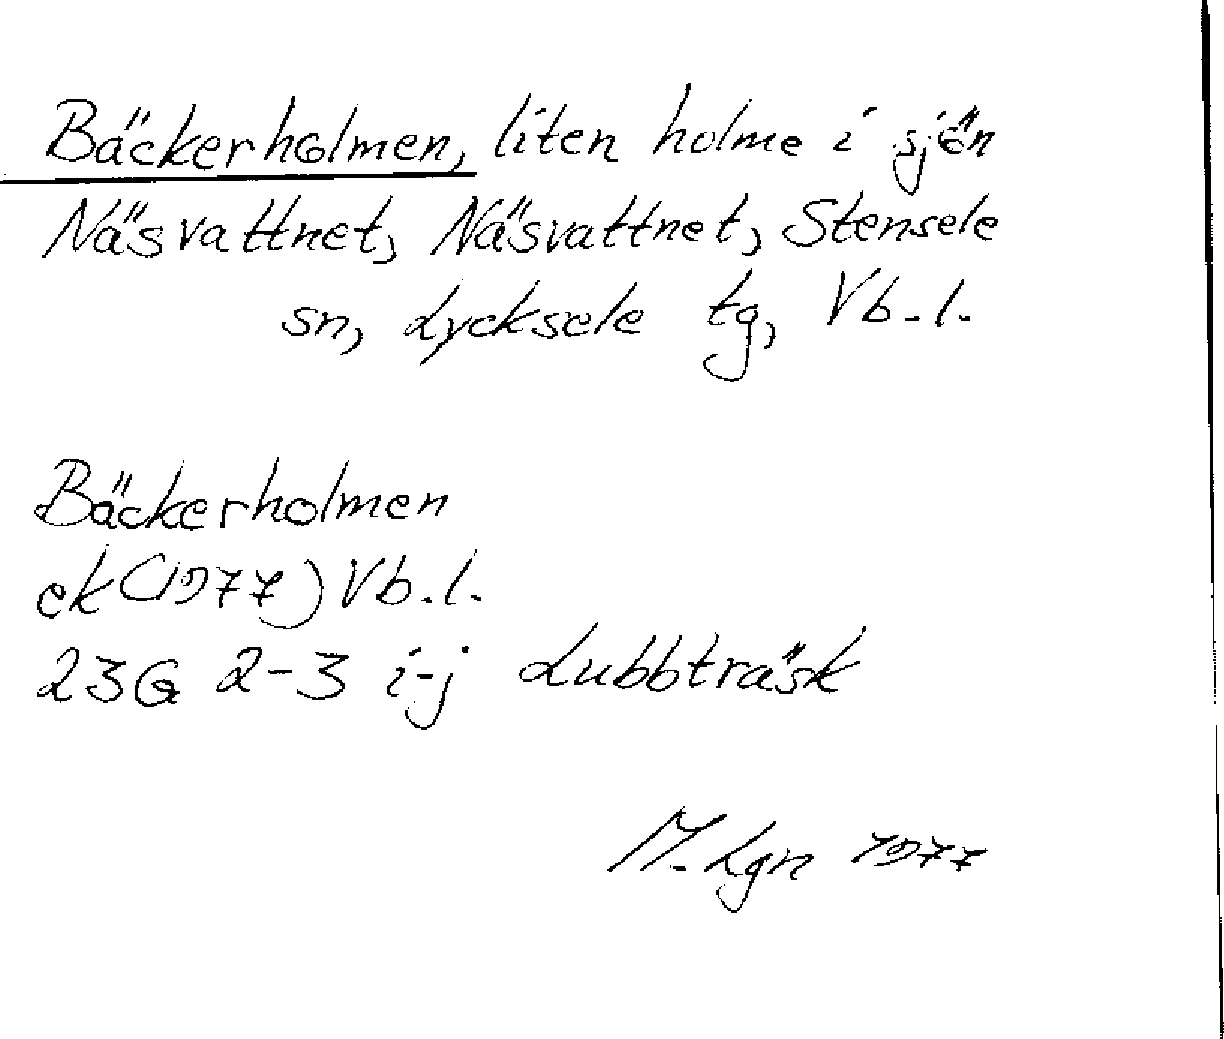 Bäckerholmen, liten holme i sjön
Näsvattnet, Näsvattnet, Stensele
sn, Lycksele tg, Vb.l.
Bäckerholmen
ek (1977) Vb.l.
23G 2-3 i-j Lubbträsk
M. Lgn 1977